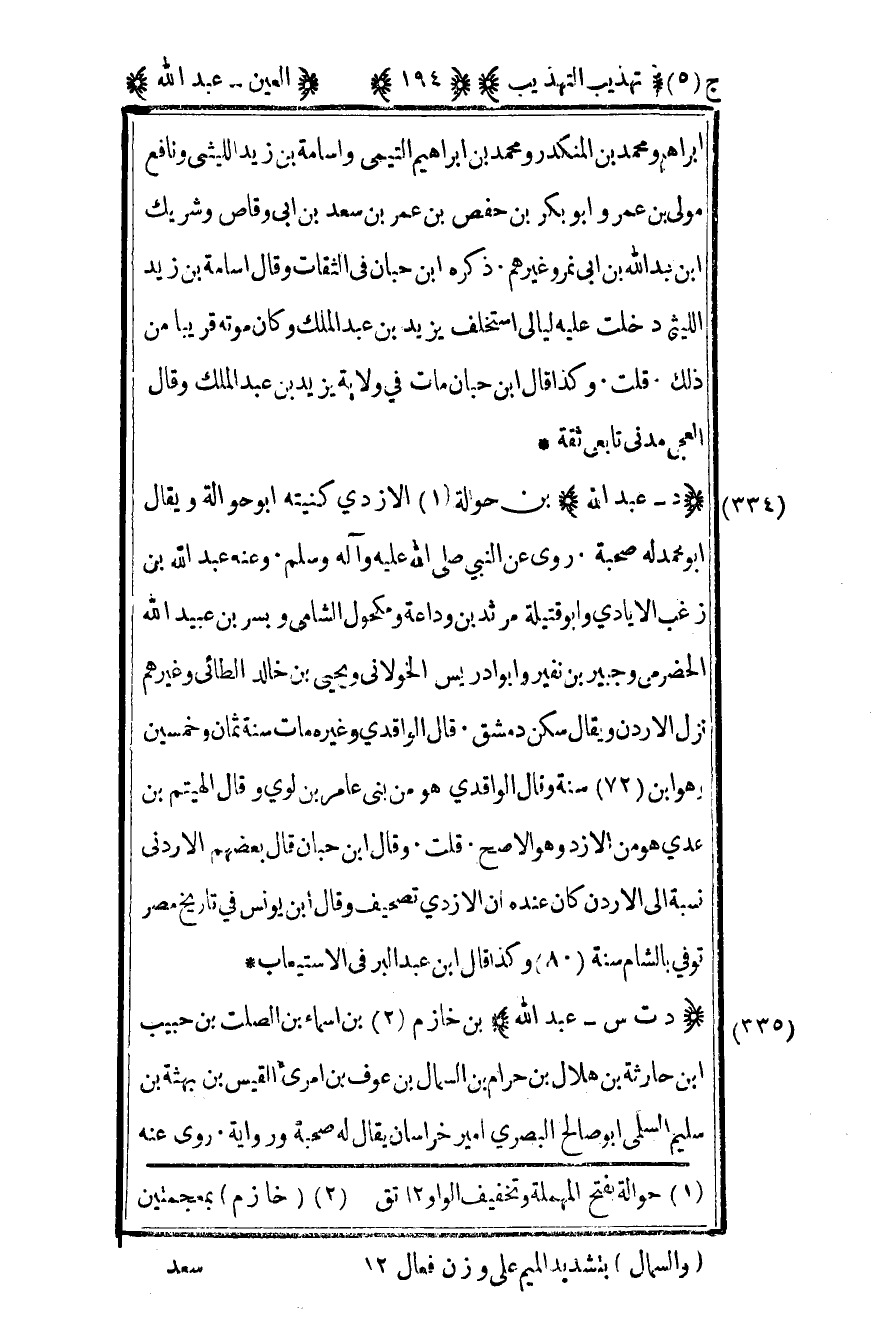 ج (٥) ﴿ تهذيب التهذيب ﴾ ﴿ ١٩٤ ﴾ ﴿ العين - عبد الله ﴾
ابراهيم ومحمد بن المنكدر ومحمد بن ابراهيم التيمى واسامة بن زيد الليثى ونافع
مولى بن عمر و ابو بكر بن حفص بن عمر بن سعد بن ابى وقاص وشريك
ابن عبدالله بن ابى نمر وغيرهم · ذكره ابن حبان فى الثقات وقال اسامة بن زيد
الليثي دخلت عليه ليالى استخلف يزيد بن عبد الملك وكان موته قريبا من
ذلك · قلت · وكذا قال ابن حبان مات في ولاية يزيد بن عبد الملك وقال
العجلى مدنى تابعى ثقة *
(٣٣٤) ﴿ د - عبد الله ﴾ بن حوالة (١) الازدي كنيته ابو حوالة ويقال
ابو محمد له صحبة · روى عن النبي صلى الله عليه وآله وسلم · وعنه عبد الله بن
زغب الايادي وابو قتيلة مرثد بن وداعة ومكحول الشامى و بسر بن عبيد الله
الحضرمى وجبير بن نفير وابوادريس الخولانى ويحيى بن خالد الطائى وغيرهم
نزل الاردن ويقال سكن دمشق · قال الواقدي وغيره مات سنة ثمان وخمسين
وهو ابن (٧٢) سنة وقال الواقدي هو من بنى عامر بن لوي و قال الهيتم بن
عدي هو من الازد وهو الاصح · قلت · وقال ابن حبان قال بعضهم الاردنى
نسبة الى الاردن كان عنده ان الازدي تصحيف وقال ابن يونس في تاريخ مصر
توفي بالشام سنة (٨٠) وكذا قال ابن عبد البر فى الاستيعاب *
(٣٣٥) ﴿ د ت س - عبد الله ﴾ بن خازم (٢) بن اسماء بن الصلت بن حبيب
ابن حارثة بن هلال بن حرام بن السمال بن عوف بن امرئ القيس بن بهثة بن
سليم السلمى ابو صالح البصري امير خراسان يقال له صحبة ورواية · روى عنه
(١) حوالة بفتح المهملة وتخفيف الواو ١٢ تق (٢) ( خازم ) بمعجمتين
( والسمال ) بتشديد الميم على وزن فعال ١٢ سعد